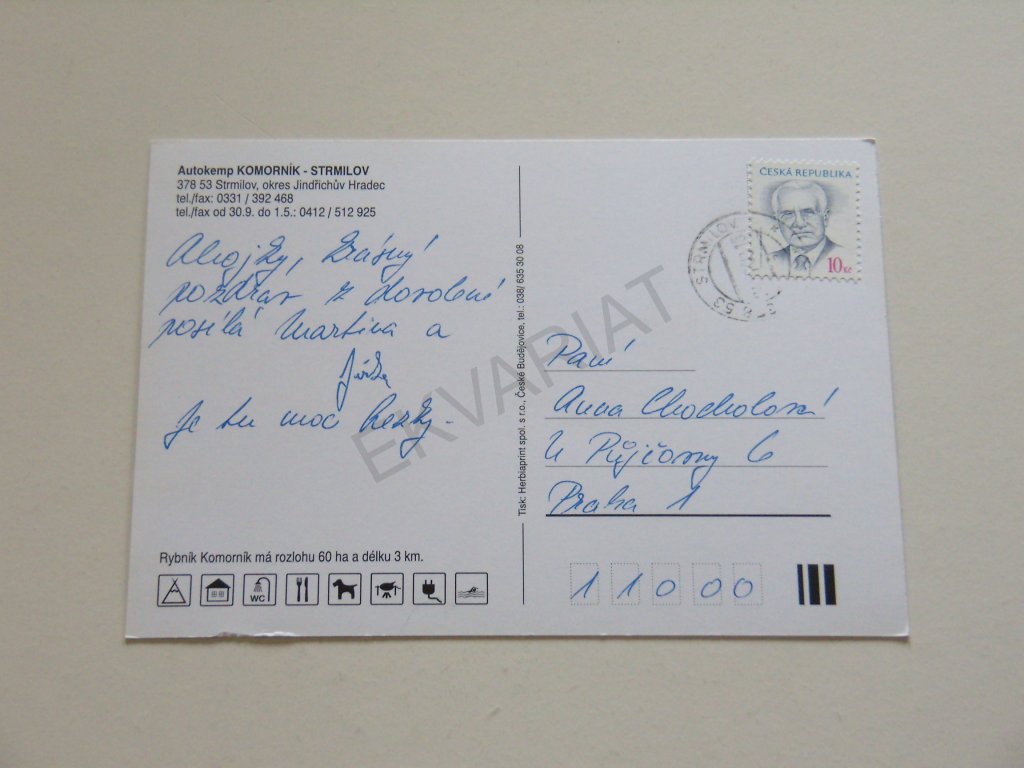 Autokemp KOMORNÍK - STRMILOV
378 53 Strmilov, okres Jindřichův Hradec
tel./fax: 0331 / 392 468
tel./fax od 30.9. do 1.5.: 0412 / 512 925
Ahojky, krásný
pozdrav z dovolené
posílá Martina a
Jirka
Je tu moc hezky.
Rybník Komorník má rozlohu 60 ha a délku 3 km.
WC
Tisk: Herbiaprint spol. s r.o., České Budějovice, tel.: 038/ 635 30 08
ČESKÁ REPUBLIKA
10 Kč
STRMILOV
378 53
Paní
Anna Chocholová
U Půjčovny 6
Praha 1
11000
EKVARIAT